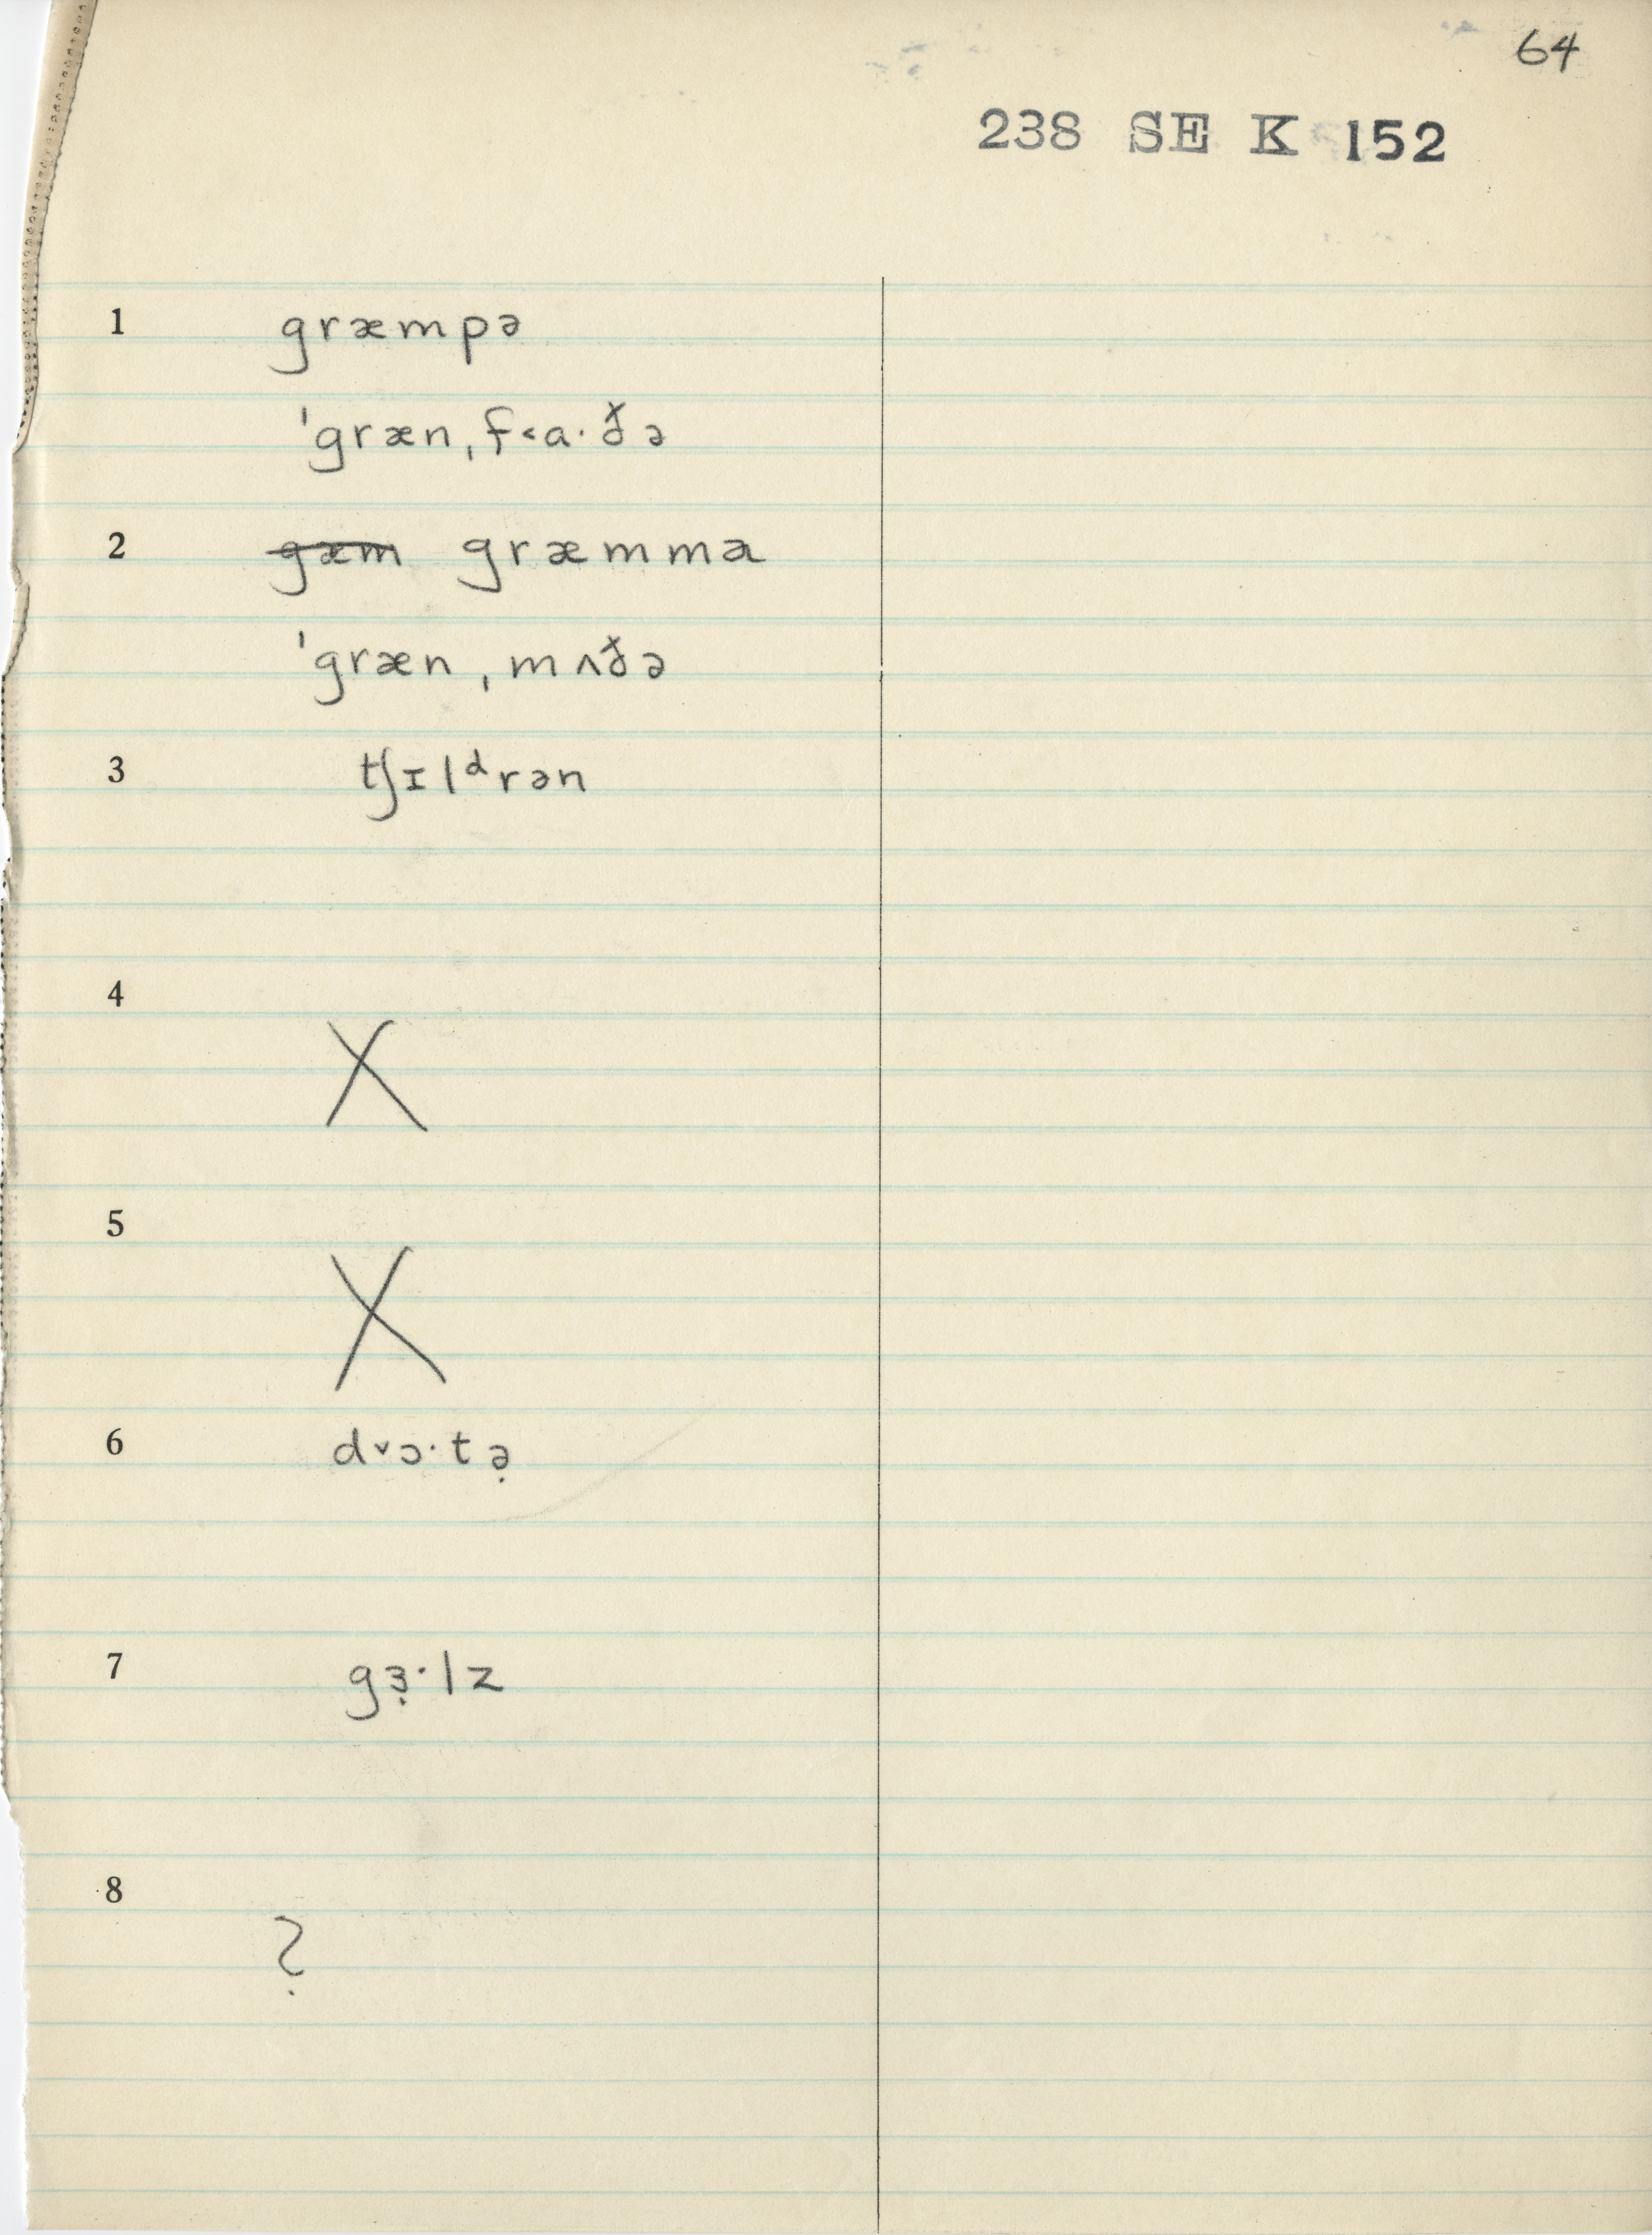 64
238 SE K 152
1 græmpə
ˈgrænˌf˂a·ðə
2 gæm græmmə
ˈgrænˌmʌðə
3 tʃɪlᵈrən
4 X
5 X
6 d˅ɔ·tə̣
7 gɜ̣·lz
8 ?